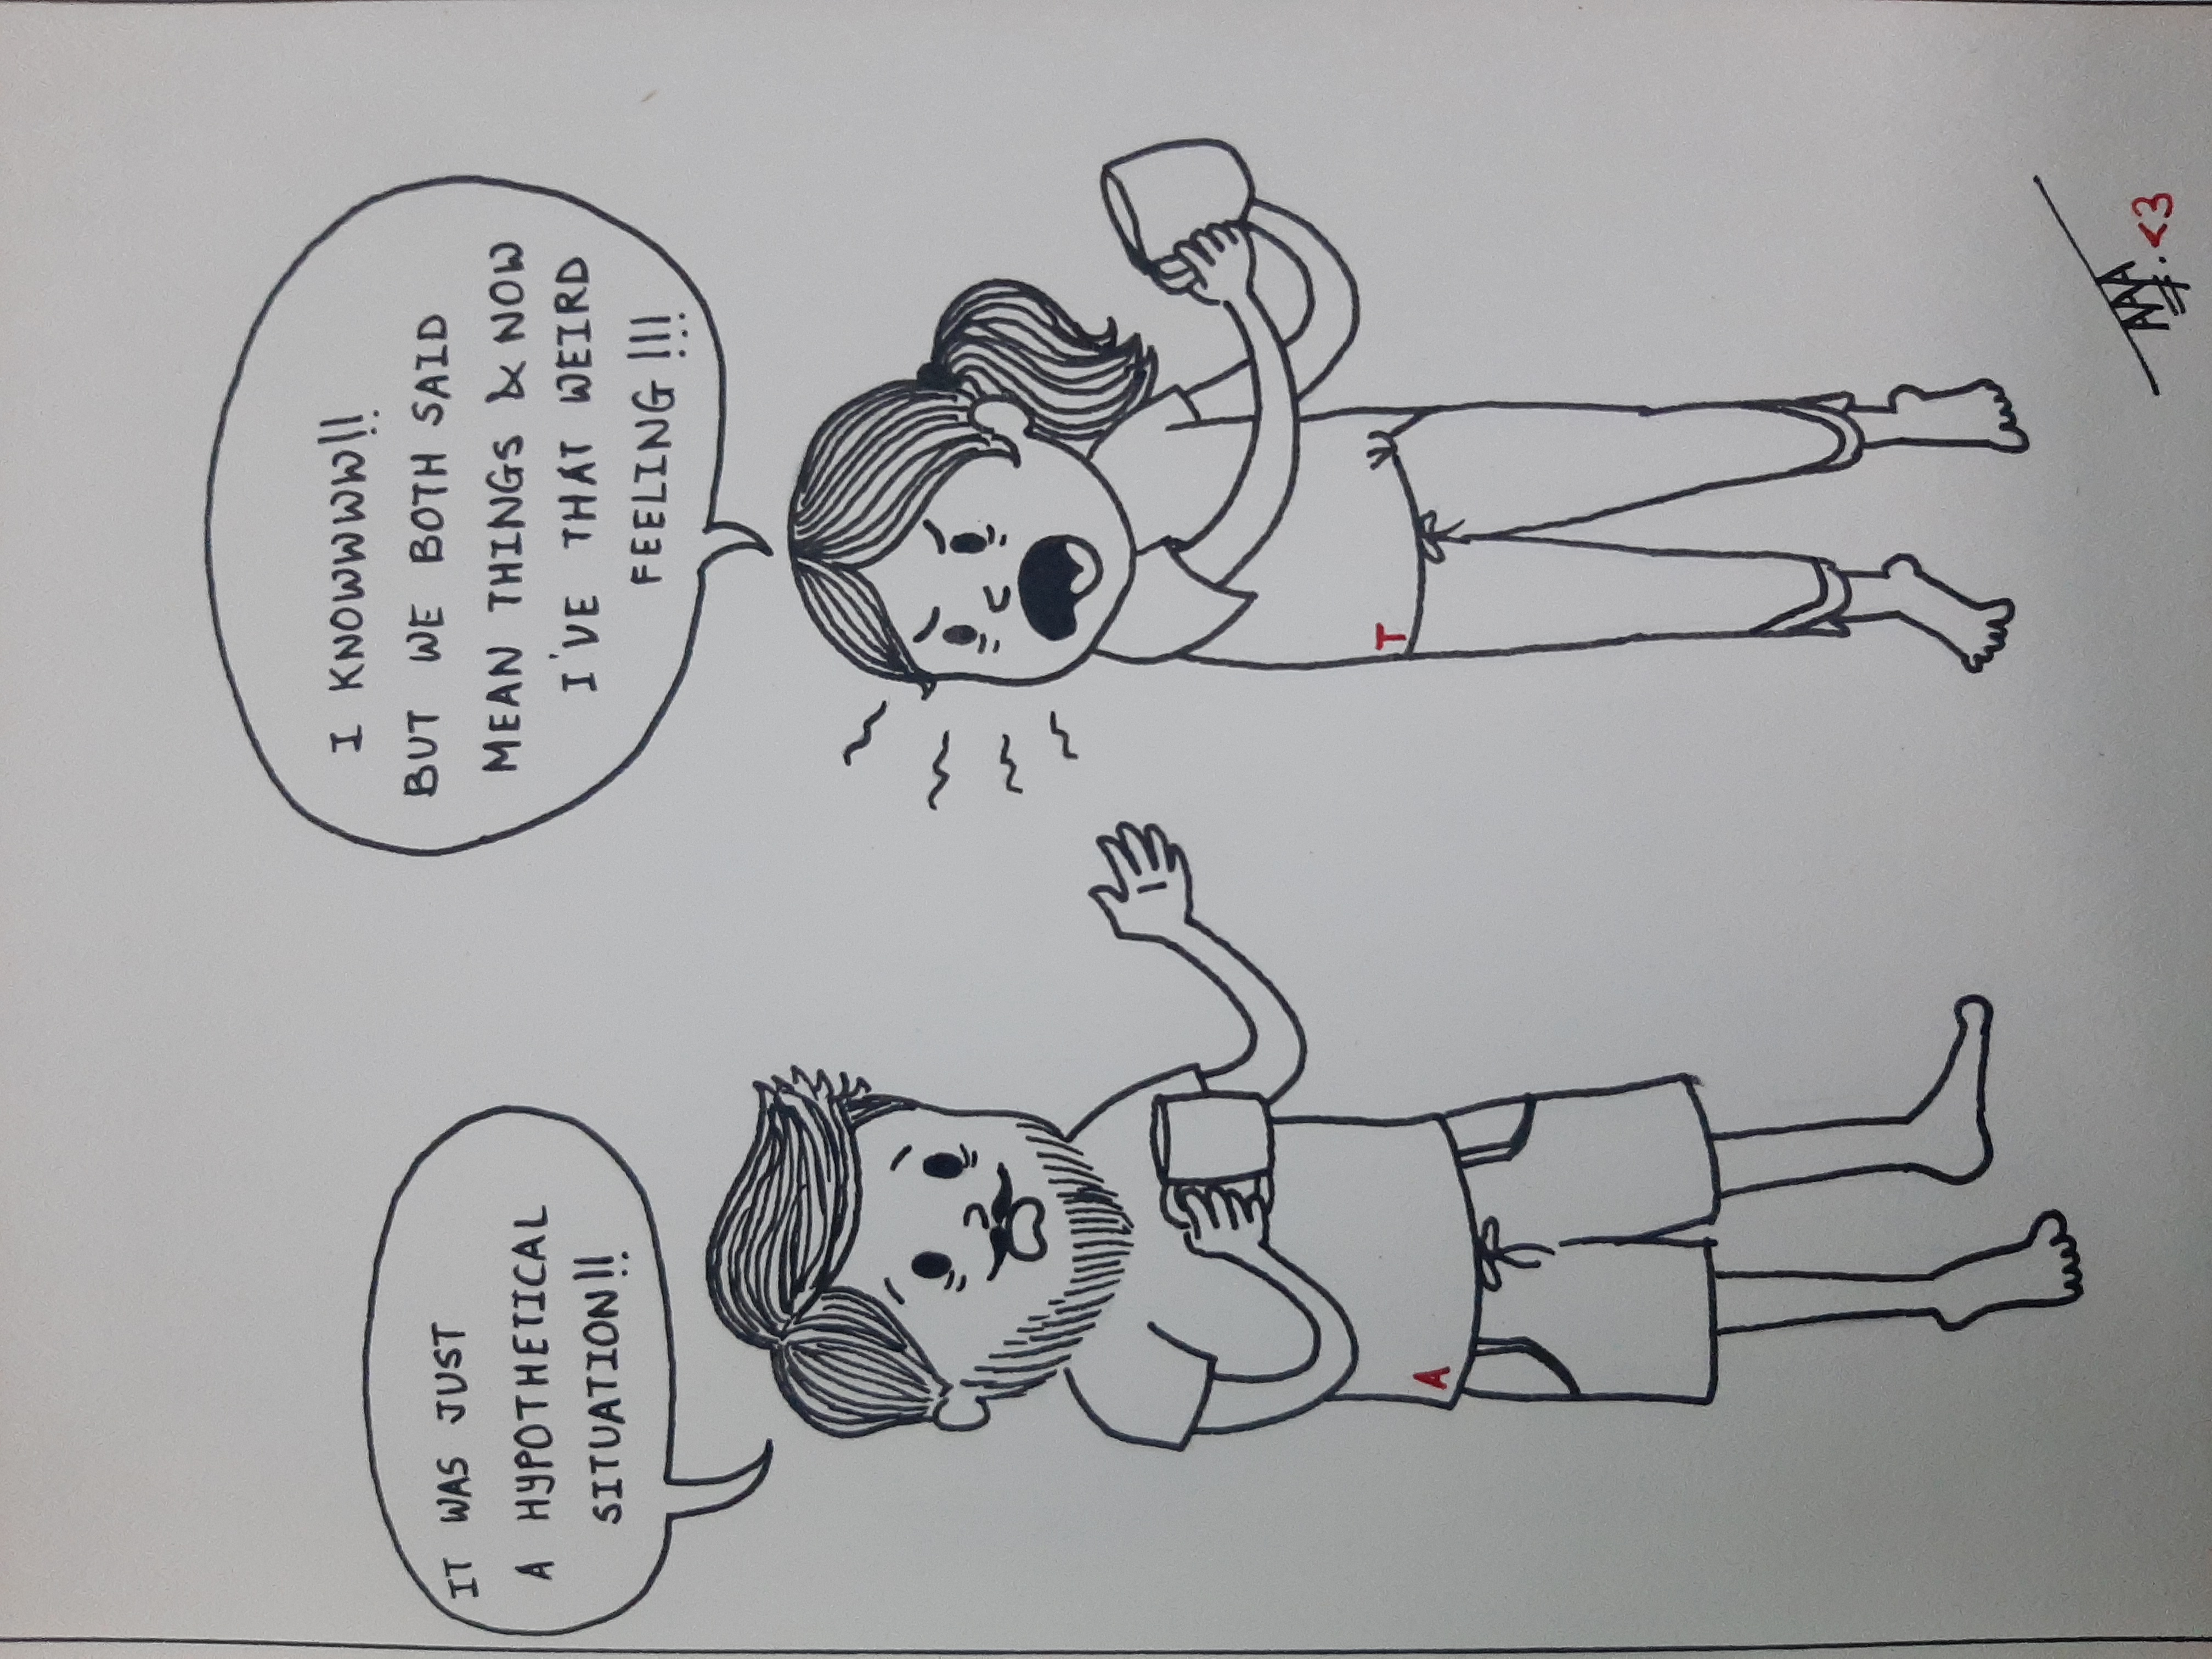 IT WAS JUST
A HYPOTHETICAL
SITUATION!!
I KNOWWWW!!
BUT WE BOTH SAID
MEAN THINGS & NOW
I'VE THAT WEIRD
FEELING!!!
A
T
AAA
.<3